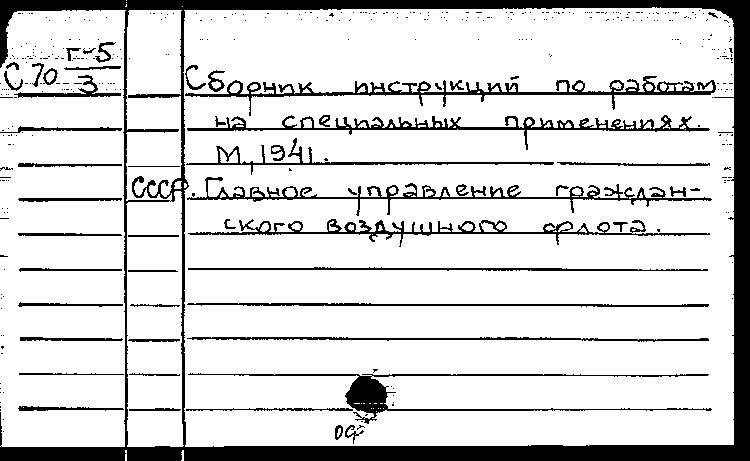 С70 г-5/3
Сборник инструкций по работам
на специальных применениях.
М., 1941.
СССР. Главное управление граждан-
ского воздушного флота.
оф